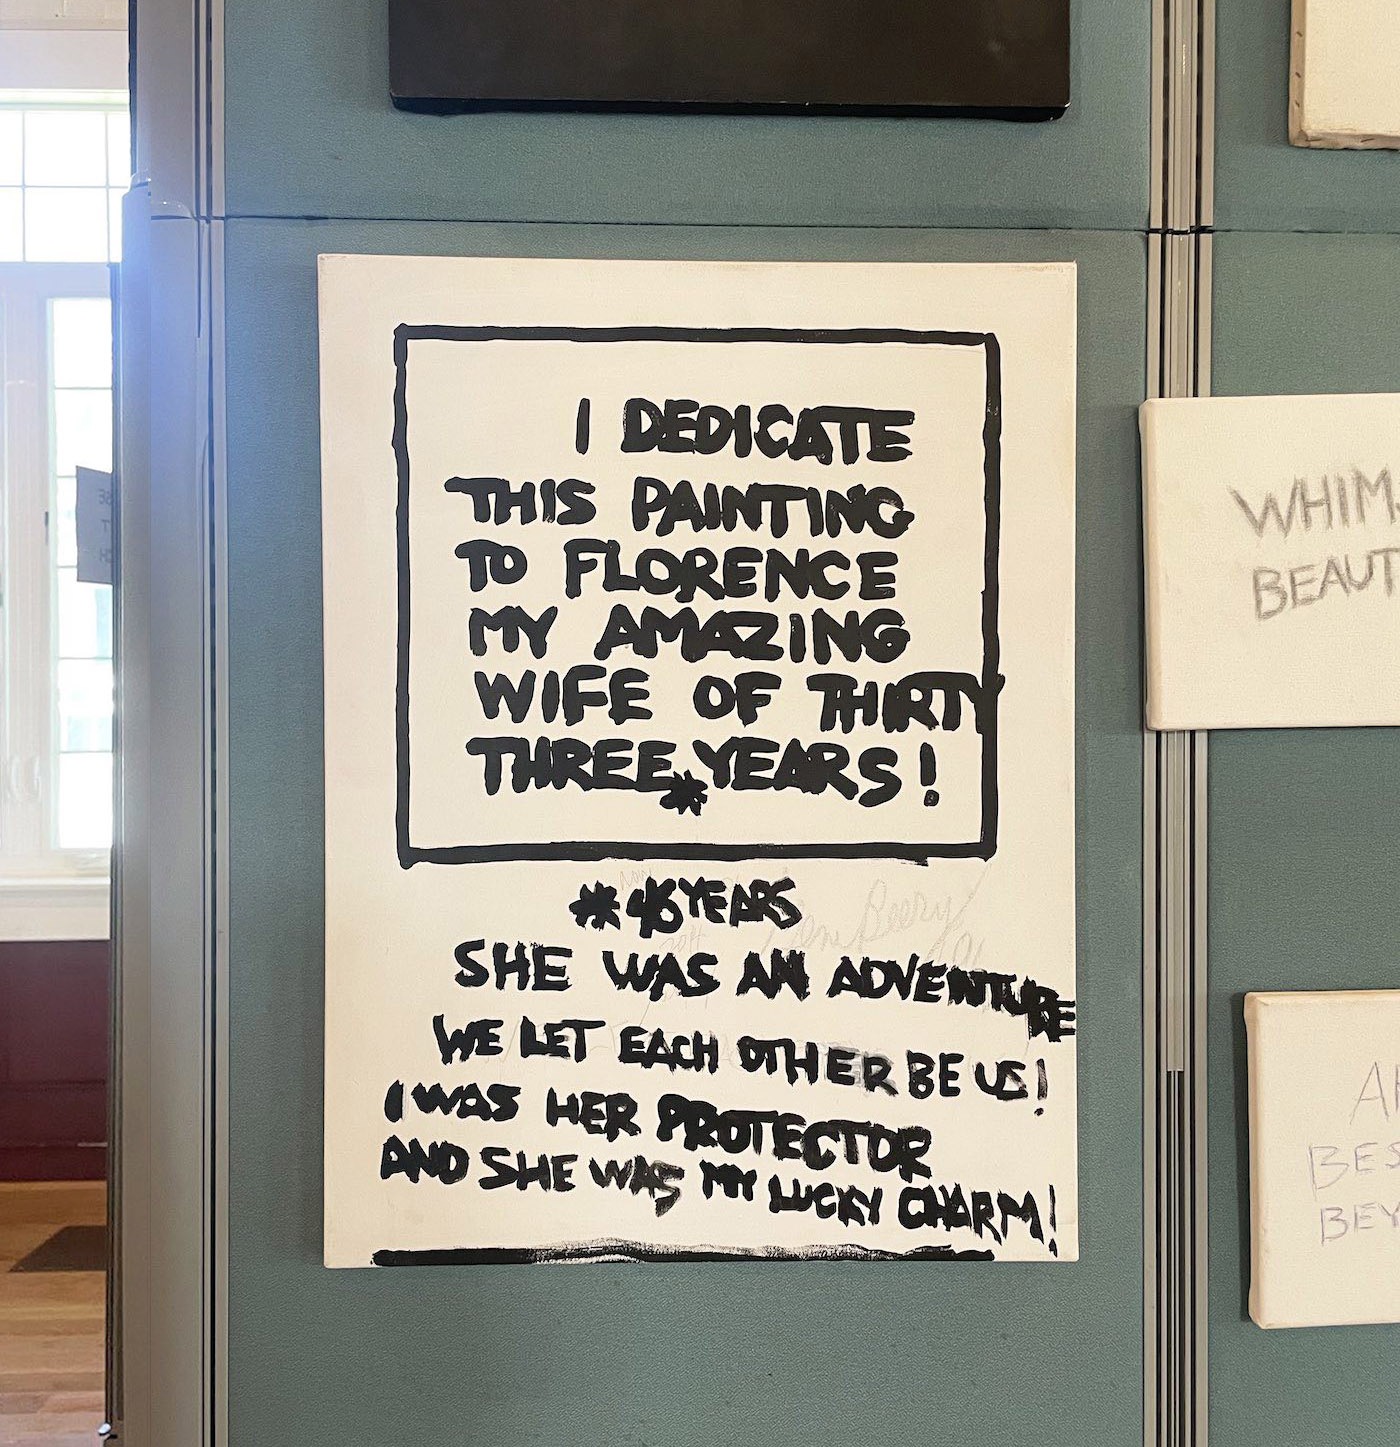 I DEDICATE
THIS PAINTING
TO FLORENCE
MY AMAZING
WIFE OF THIRTY
THREE * YEARS!
* 46 YEARS
Gene Beery
SHE WAS AN ADVENTURE
WE LET EACH OTHER BE US!
I WAS HER PROTECTOR
AND SHE WAS MY LUCKY CHARM!
WHIM
BEAUT